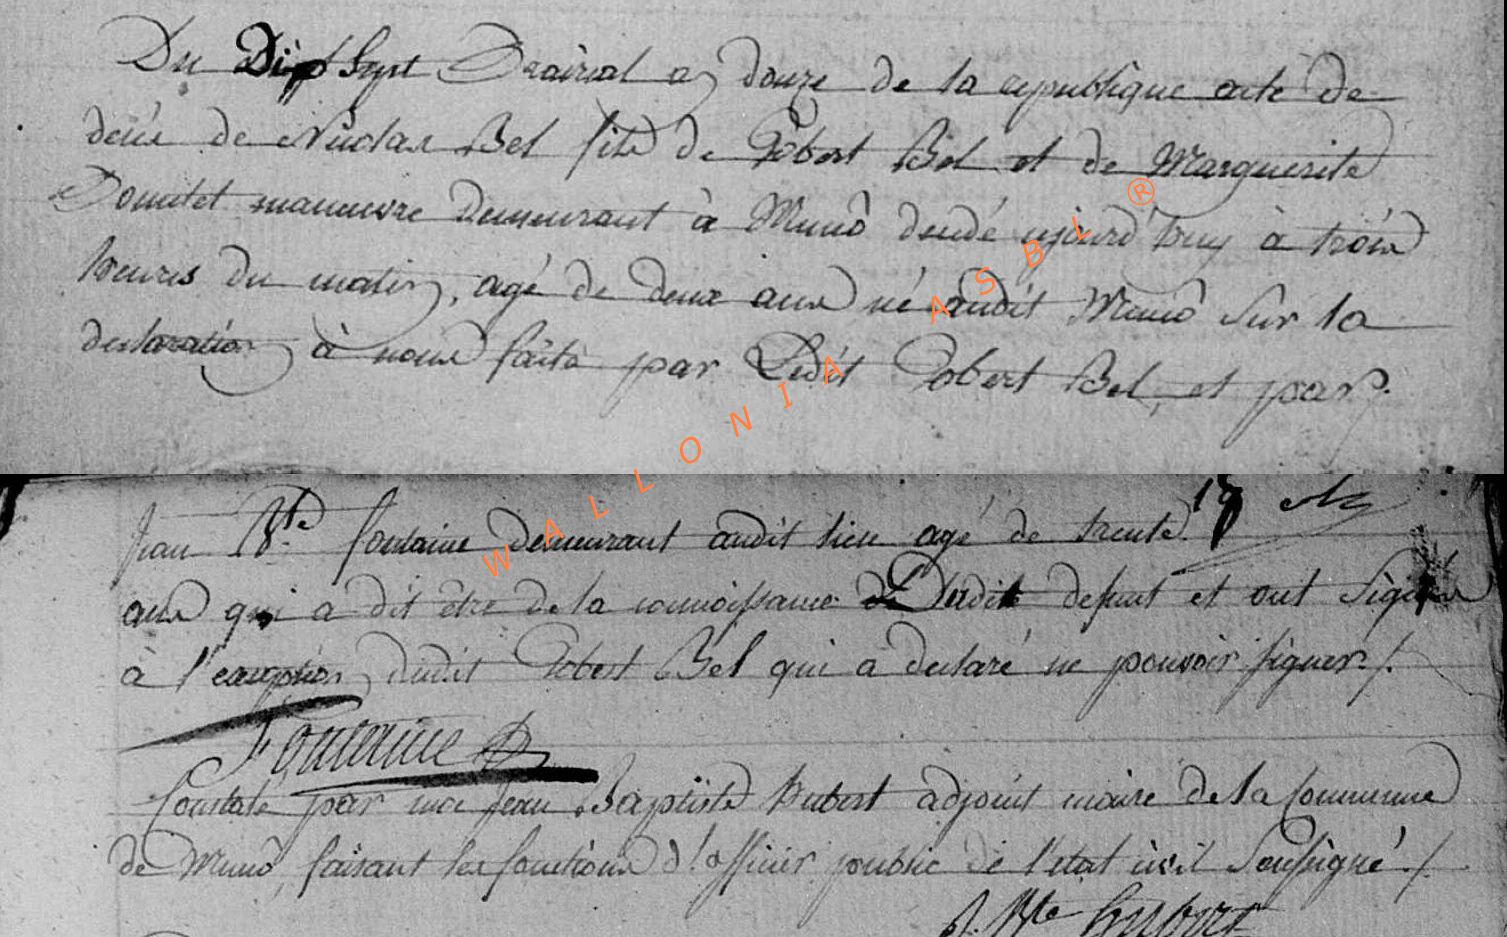 Du Dix Sept Prairial an douze de la republique acte de
decés de Nicolas Bel fils de Gobert Bel et de Marguerite
manœuvre demeurant à Munô decedé aujourd'huy à trois
heures du matin, agé de deux ans né audit Munô Sur la
declaration à nous faite par Ledit Gobert Bel, et par
Jean Bte fontaine demeurant audit lieu agé de trente
ans qui a dit être de la connoissance Dudit defunt et ont Signés
à l'exception dudit Gobert Bel qui a declaré ne pouvoir signer ./.
Fontaine
Constaté par moi Jean Baptiste hubert adjoint maire de la Commune
de Munô, faisant les fonctions d'officier public de l'etat civil Soussigné ./.
J. Bte hubert
WALLONIA ASBL ®